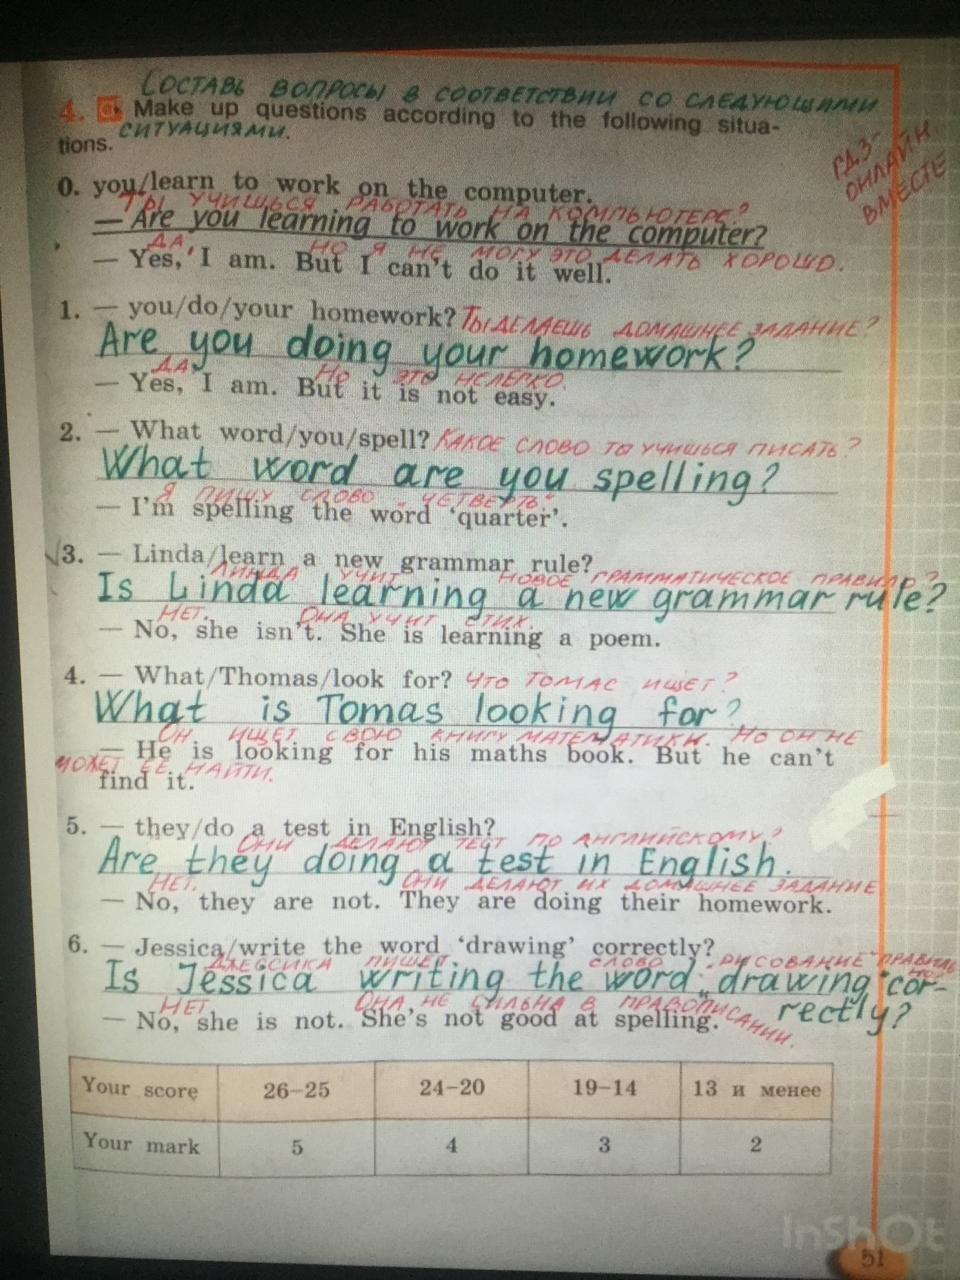 Составь вопросы в соответствии со следующими
4. Make up questions according to the following situa-
ситуациями.
tions.
ГДЗ-
ОНЛАЙН
ВМЕСТЕ
0. you/learn to work on the computer.
Ты учишься работать на компьютере?
— Are you learning to work on the computer?
Да, но я не могу это делать хорошо.
— Yes, I am. But I can't do it well.
1. — you/do/your homework? Ты делаешь домашнее задание?
Are you doing your homework?
Да. Но это нелегко.
— Yes, I am. But it is not easy.
2. — What word/you/spell? Какое слово ты учишься писать?
What word are you spelling?
Я пишу слово „четверть"
— I'm spelling the word 'quarter'.
3. — Linda/learn a new grammar rule?
Линда учит новое грамматическое правило?
Is Linda learning a new grammar rule?
Нет. Она учит стих.
— No, she isn't. She is learning a poem.
4. — What/Thomas/look for? Что Томас ищет?
What is Tomas looking for?
Он ищет свою книгу математики. Но он не
— He is looking for his maths book. But he can't
может ее найти.
find it.
5. — they/do a test in English?
Они делают тест по английскому?
Are they doing a test in English.
Нет. Они делают их домашнее задание
— No, they are not. They are doing their homework.
6. — Jessica/write the word 'drawing' correctly?
Джессика пишет слово „рисование" правиль
но?
Is Jessica writing the word „drawing" cor-
Нет. Она не сильна в правописании.
— No, she is not. She's not good at spelling.
rectly?
Your score 26–25 24–20 19–14 13 и менее
Your mark 5 4 3 2
InShOt
51